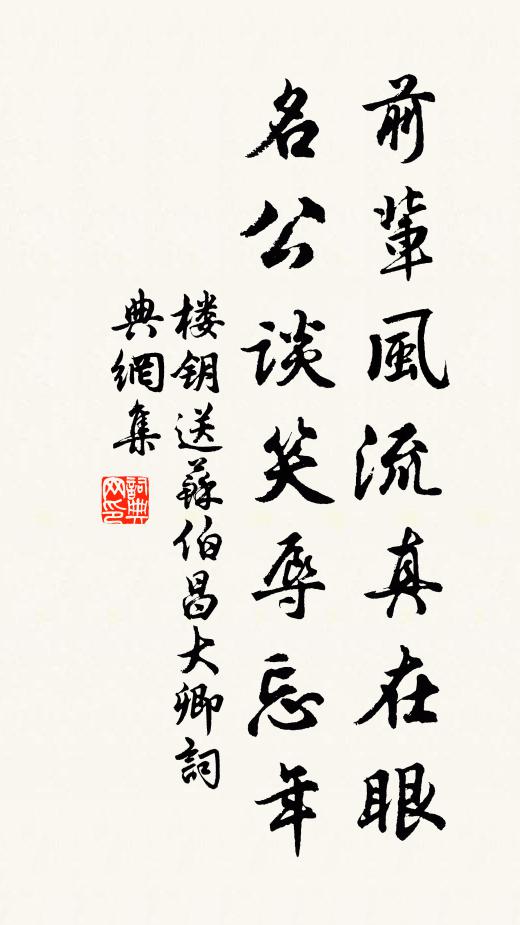 前輩風流真在眼
名公談笑辱忘年
楼钥送蘇伯昌大卿詞
典網集
詞典網印